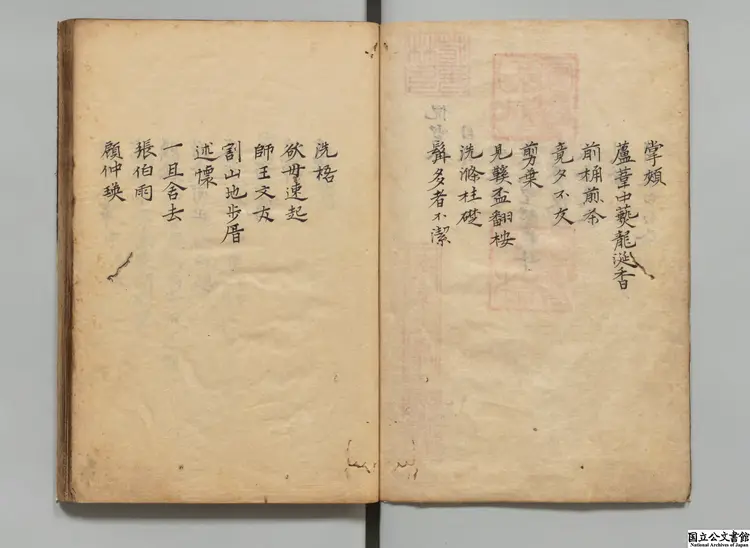 掌頰
蘆葦中爇龍涎香
前桶煎茶
竟夕不交
剪棄
見糞盃翻梭
洗滌柱礎
髯多者不潔
洗梧
欲母速起
師王文友
割山地步厝
述懷
一旦舍去
張伯雨
顧仲瑛
国立公文書館
National Archives of Japan